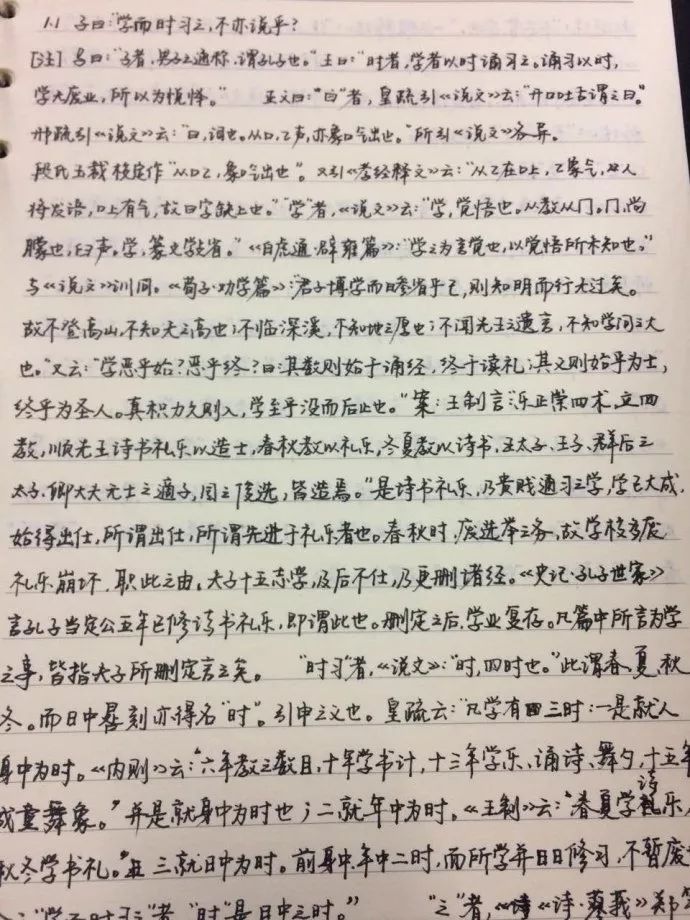 1.1 子曰:“学而时习之,不亦说乎?
[注] 马曰:“子者,男子之通称,谓孔子也。”王曰:“时者,学者以时诵习之。诵习以时,
学无废业,所以为悦怿。” 正义曰:“曰”者,皇疏引《说文》云:“开口吐舌谓之曰。”
邢疏引《说文》云:“曰,词也。从口,乙声,亦象口气出也。”所引《说文》各异。
段氏玉裁校定作“从口乙,象口气出也”。又引《孝经释文》云:“从乙在口上,乙象气,人
将发语,口上有气,故曰字缺上也。”“学”者,《说文》云:“学,觉悟也。从教从冂。冂,尚
朦也,臼声。学,篆文学省。”《白虎通·辟雍篇》:“学之为言觉也,以觉悟所未知也。”
与《说文》训同。《荀子·劝学篇》:“君子博学而日参省乎己,则知明而行无过矣。
故不登高山,不知天之高也;不临深溪,不知地之厚也;不闻先王之遗言,不知学问之大
也。”又云:“学恶乎始?恶乎终?曰:其数则始于诵经,终于读礼;其义则始乎为士,
终乎为圣人。真积力久则入,学至乎没而后止也。”案:王制言:“乐正崇四术,立四
教,顺先王诗书礼乐以造士,春秋教以礼乐,冬夏教以诗书,王太子、王子、群后之
太子、卿大夫元士之適子,国之俊选,皆造焉。”是诗书礼乐,乃贵贱通习之学,学已大成,
始得出仕,所谓出仕,所谓先进于礼乐者也。春秋时,废选举之务,故学校多废
礼乐崩坏,职此之由。夫子十五志学,及后不仕,乃更删诸经。《史记·孔子世家》
言孔子当定公五年已修诗书礼乐,即谓此也。删定之后,学业复存。凡篇中所言为学
之事,皆指夫子所删定言之矣。 “时习”者,《说文》:“时,四时也。”此谓春、夏、秋
冬。而日中晷刻亦得名“时”。引申之义也。皇疏云:“凡学有三时:一是就人
身中为时。《内则》云:“六年教之数目,十年学书计,十三年学乐、诵诗、舞勺,十五年
成童舞象。”并是就身中为时也;二就年中为时。《王制》云:“春夏学诗乐,
秋冬学书礼。”三就日中为时。前身中、年中二时,而所学并日日修习,不暂废
“学而时习之”者,“时”是日中之时。” “之”者,《诗·蓼莪》郑